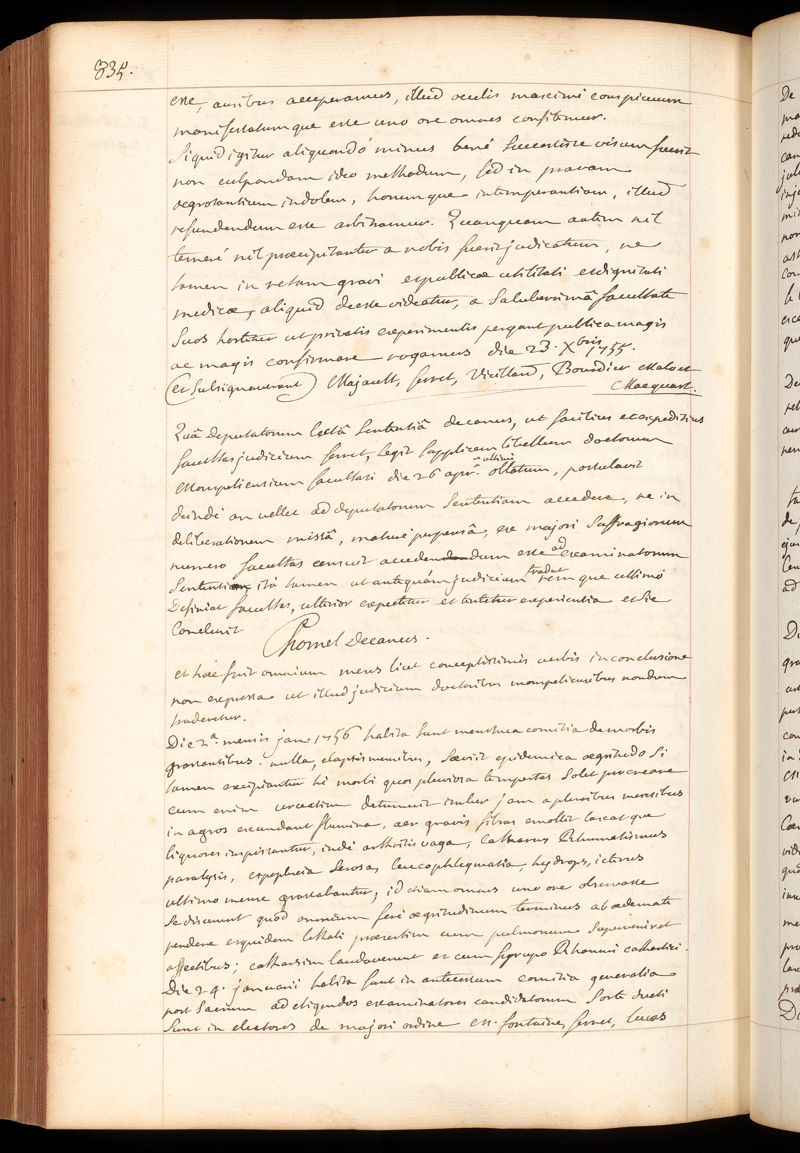 834.
esse, auribus acceperamus, illud oculis maxime conspicuum
manifestatumque esse uno ore omnes confitemur.
Siquid igitur aliquandó minus bené successisse visum fuerit
non culpandam ideo methodum, sed in pravam
aegrotantium indolem, horumque intemperantiam, illud
refundendum esse arbitramur. Quanquam autem nil
temeré nil praecipitanter a nobis fuerit judicatum, ne
tamen in re tam gravi reipublicae utilitati et dignitati
medicae, aliquid deesse videatur, a saluberrimâ facultate
suos hortetur ut privatis experimentis pergant publica magis
ac magis confirmare rogamus die 23. Xbris 1755.
(et subsignaverunt) Majault, ferret, Vieillard, Bourdier Malo et
Macquart.
Quâ deputatorum lectâ sententiâ decanus, ut facilius et expeditius
facultas judicium ferret, legit supplicem libellum doctorum
Monspeliensium facultati die 26 apr. ultimi oblatum, postulavit
deinde an vellet ad deputatorum sententiam accedere, re in
deliberationem missâ, maturé perpensâ, ex majori suffragiorum
numero facultas censuit accedendum esse ad examinatorum
sententiam ita tamen ut antequam judicium tradat remque ultimó
definiat facultas, ulterior expectetur et tentetur experientia et sic
Conclusit Chomel decanus.
et haec fuit omnium mens licet conceptissimis verbis in conclusione
non expressa ut illud judicium doctoribus monspeliensibus nondum
traderetur.
Die 2a. mensis jan. 1756 habita sunt menstrua comitia de morbis
grassantibus. nulla, elapsis mensibus, saeviit epidemica aegritudo si
tamen excipiantur hi morbi quos pluviosa tempestas solet procreare
cum enim detumuit imber jam a pluribus mensibus
in agros exundant flumina, aer gravis fibras emollit laxatque
liquores inspissantur, indé arthritis vaga, catharus Rhumatismus
paralysis, apoplexia serosa, leucophlegmatia, hydrops, icterus
ultimo mense grassabantur; id etiam omnes uno ore observasse
se dixerunt quod omnium feré aegritudinum terminus ab oedemate
pendere equidem lethali praesertim cum pulmonum superveniret
affectibus; catharsim laudaverunt et cum syrupo Rhamni cathartici.
Die 24. januarii habita sunt in anteessum comitia generalia
post sacrum ad eligendos examinatores candidatorum Sorte ducti
sunt in electores de majori ordine M. fontaine, ferret, lucas